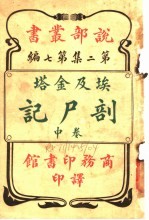 說部叢書
第二集第七編
埃及金塔
剖尸記
卷中
商務印書館
譯印